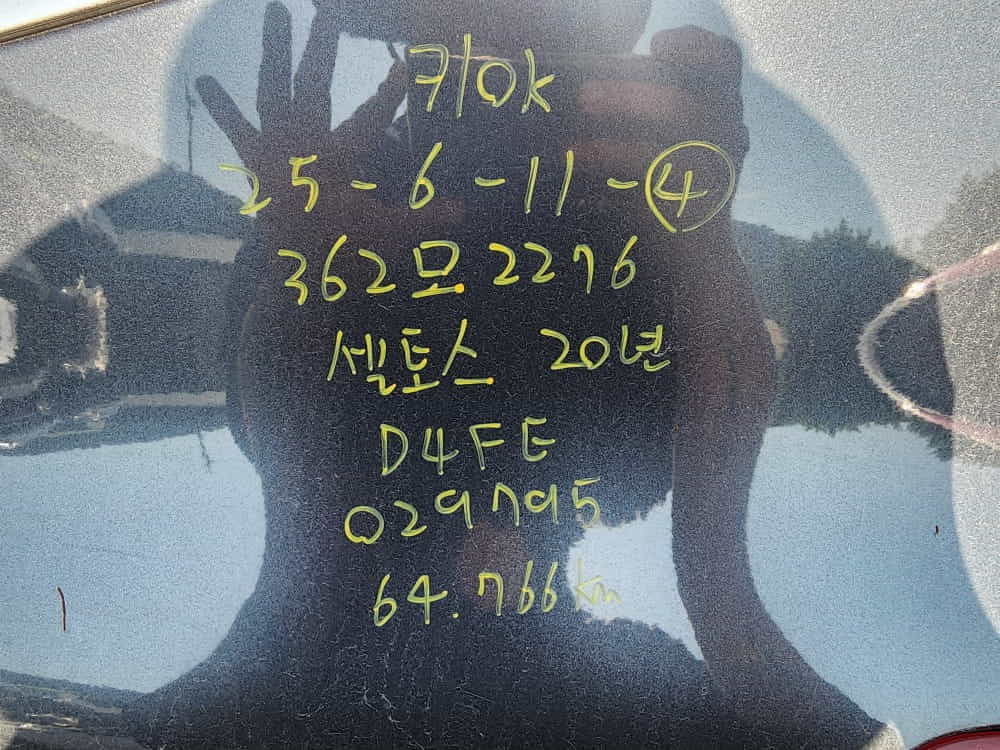 키ok
25-6-11-④
362모2276
셀토스 20년
D4FE
029795
64.766km